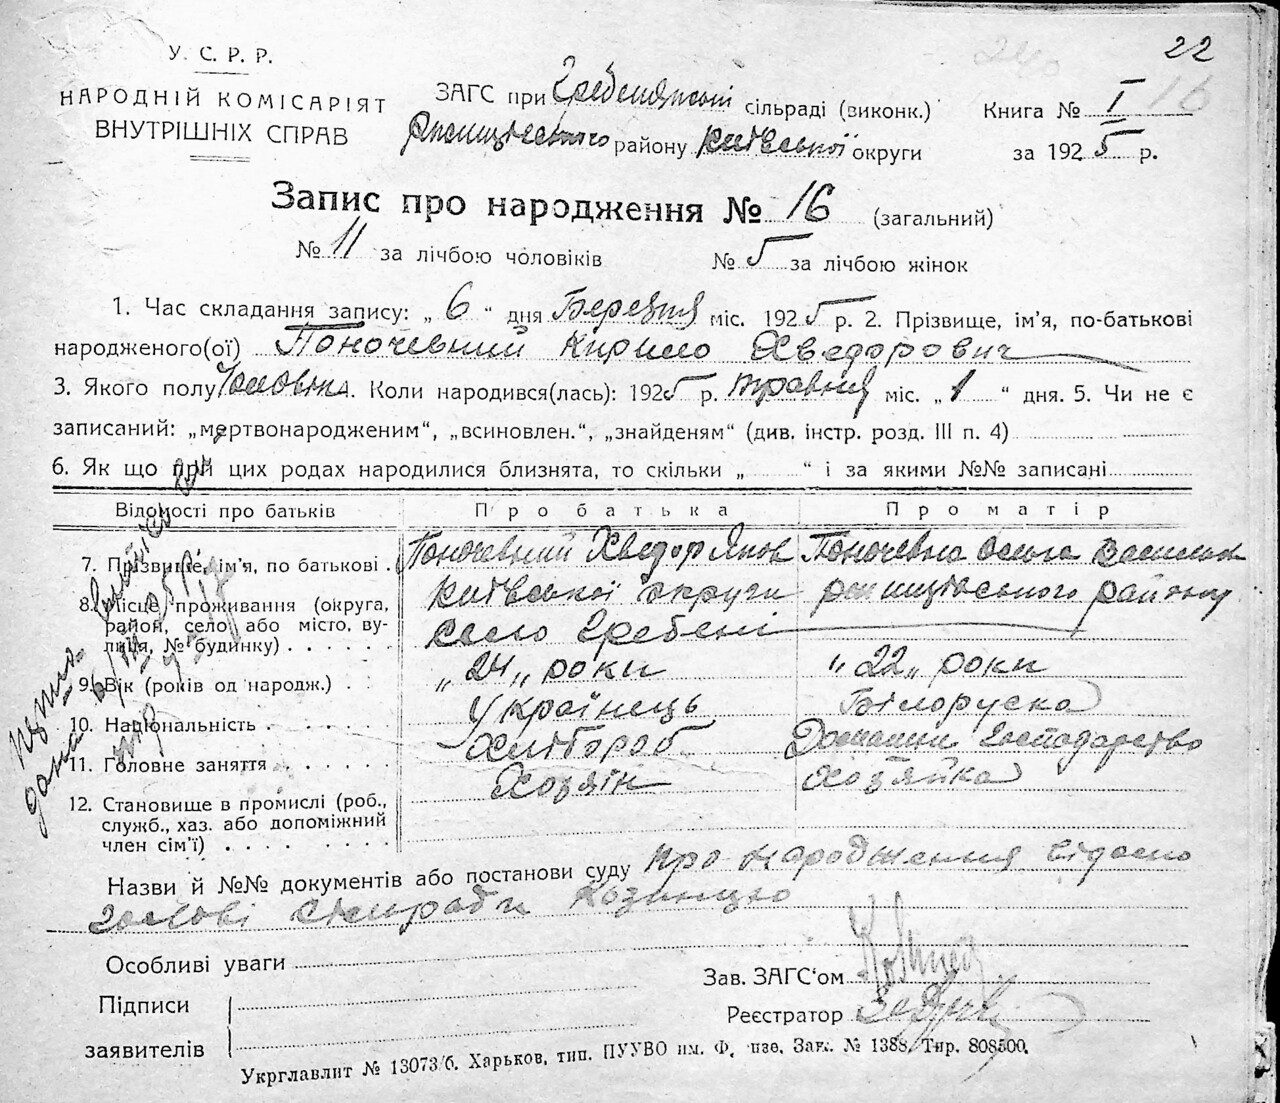 22
У. С. Р. Р.
НАРОДНІЙ КОМІСАРІЯТ
ВНУТРІШНІХ СПРАВ
ЗАГС при Гребенянські сільраді (виконк.)
району Київської округи
Книга № I 16
за 1925 р.
Запис про народження № 16 (загальний)
№ 11 за лічбою чоловіків № 5 за лічбою жінок
1. Час складання запису: „ 6 “ дня Березня міс. 1925 р. 2. Прізвище, ім'я, по-батькові
народженого(ої) Поночевний Кирило Хведорович
3. Якого полу Чоловіча. Коли народився(лась): 1925 р. травня міс. „ 1 “ дня. 5. Чи не є
записаний: „мертвонародженим“, „всиновлен.“, „знайденям“ (див. інстр. розд. III п. 4)
6. Як що при цих родах народилися близнята, то скільки „ “ і за якими №№ записані
Відомості про батьків Про батька Про матір
7. Прізвище, ім'я, по батькові . Поночевний Хведор Яков Поночевна Ольга
8. Місце проживання (округа, Київської округи району
район, село або місто, ву- село Гребені
лиця, № будинку) . . . . . .
9. Вік (років од народж.) . . „24„ роки „22„ роки
10. Національність . . . . . . Українець Білоруска
11. Головне заняття . . . . . Хлібороб Домашнє Господарство
12. Становище в промислі (роб., Хозяін хозяйка
служб., хаз. або допоміжний
член сім'ї) . . . . . . . .
Назви й №№ документів або постанови суду про народження відомо
голові сільради Козинцю
Особливі уваги
Підписи
заявителів
Зав. ЗАГС'ом
Реєстратор
Укрглавлит № 13073/б. Харьков, тип. ПУУВО им. Ф. Зак. № 1388. Тир. 808500.